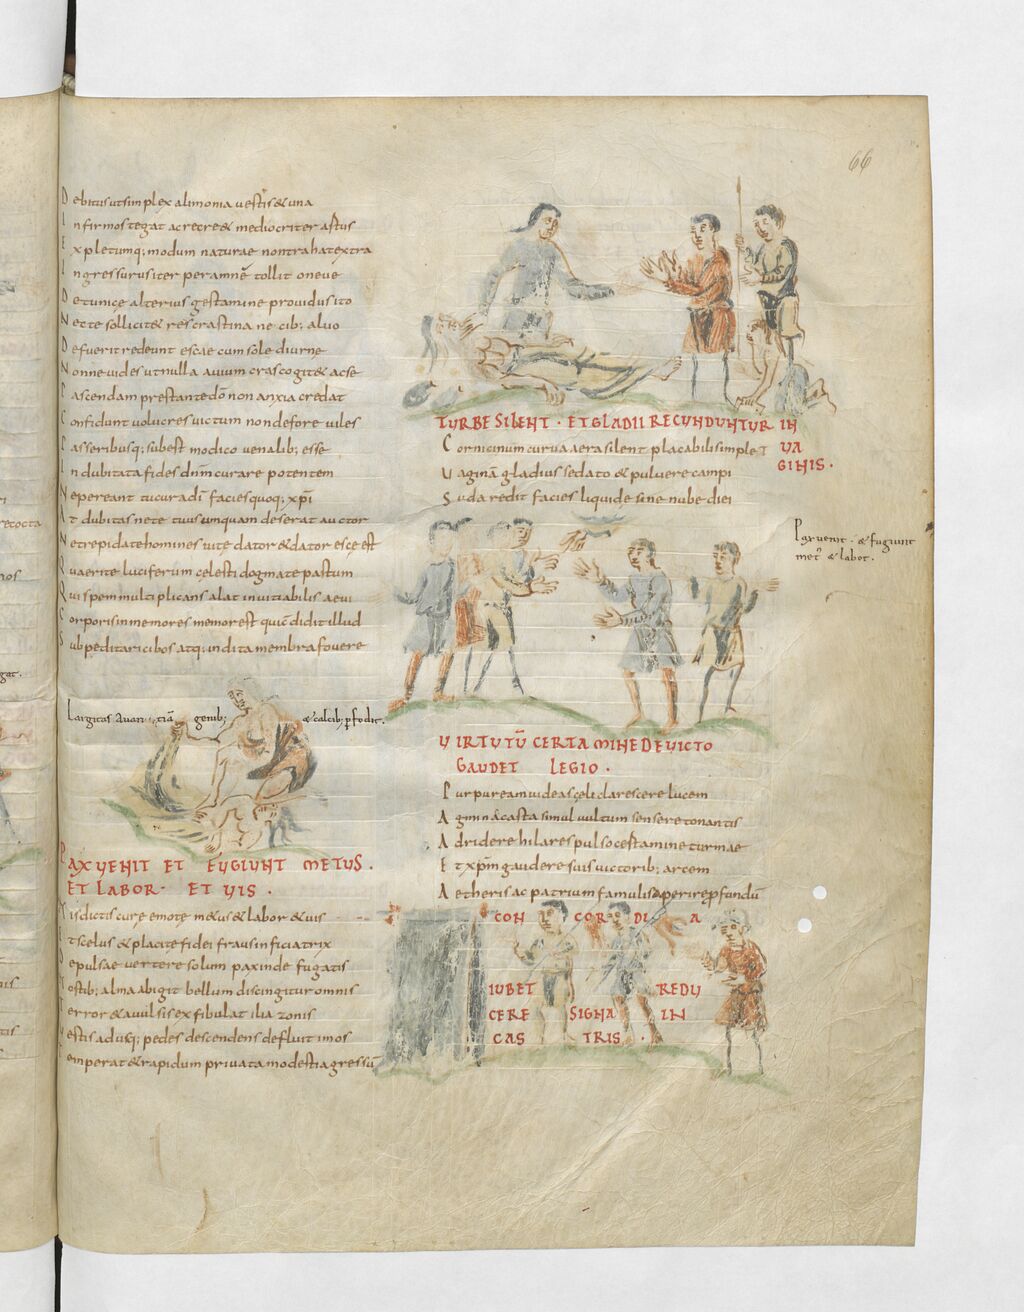 66
Debitus ut simplex alimonia vestis & una
Infirmos tegat ac recre& mediocriter astus
Expletumq; modum naturae non trahat extra
Ingressurus iter peram ne tollit oneve
De tunicę alterius gestamine providus ito
Nec te sollicit& res crastina ne cib; alvo
Defuerit redeunt escae cum sole diurne
Nonne vides ut nulla avium cras cogit& ac se
Pascendam prestante dō non anxia credat
Confidunt volucres victum non defore viles
Passeribusq; subest modico venalib; esse
Indubitata fides dnm curare potentem
Ne pereant tu cura di faciesquoq; xpi
At dubitas ne te tuus umquam deserat auctor
Ne trepidate homines vite dator & dator escę est
Quaerite luciferum cęlesti dogmate pastum
Qui spem multiplicans alat invitiabilis aevi
Corporis inmemores memor est qui cdidit illud
Subpeditari cibos atq; indita membra fovere
Largitas Avari tiā genib; & calcib; pfodit.
PAX VENIT ET FUGIUNT METUS.
ET LABOR. ET VIS.
His dictis curę emotę m&us & labor & vis
Et scelus & placite fidei fraus inficiatrix
Depulsae vertere solum pax inde fugatis
Hostib; alma abigit bellum discingitur omnis
Terror & avulsis exfibulat ilia zonis
Vestis ad usq; pedes descendens defluit imos
Temperat & rapidum privata modestia gressū
TURBE SILENT. ET GLADII RECUNDUNTUR IN
VA
GINIS.
Cornicinum curva aera silent placabilis implet
Vaginā gladius sedato & pulvere campi
Suda redit facies liquide sine nube diei
Pax venit. & fugiunt
met' & labor.
VIRTUTŪ CERTAMINE DEVICTO
GAUDET LEGIO.
Purpuream videas cęli clarescere lucem
Agmina casta simul vultum sensere tonantis
Adridere hilares pulso certamine turmae
Et xpm gaudere suis victorib; arcem
Aetheris ac patrium famulis aperire pfundū
CON COR DI A
IUBET REDU
CERE SIGNA IN
CAS TRIS.